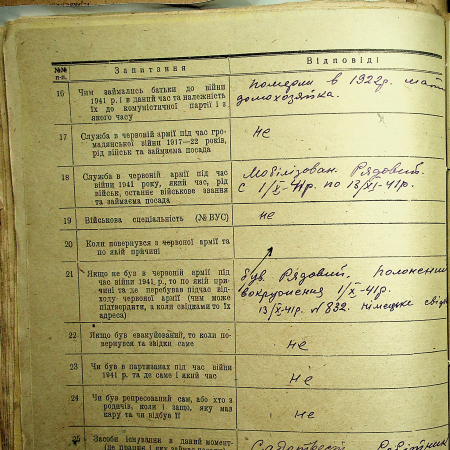 №№ п-п. Запитання Відповіді
16 Чим займались батьки до війни
1941 р. і в даний час та належність
їх до комуністичної партії і з
якого часу
померли в 1922р. мати
домохозяйка.
17 Служба в червоній армії під час гро-
мадянської війни 1917—22 років,
рід військ та займаєма посада
не
18 Служба в червоній армії під час
війни 1941 року, який час, рід
військ, останнє військове звання
та займаєма посада
Мобілізован. Рядовий.
с 1/X-41р. по 13/XI-41р.
19 Військова спеціальність (№ ВУС)
не
20 Коли повернувся з червоної армії та
по якій причині
21 Якщо не був в червоній армії під
час війни 1941 р., то по якій при-
чині та де перебував підчас від-
ходу червоної армії (чим може
підтвердити, а коли свідками то їх
адреса)
був. Рядовий.
1/X-41р.
13/XI-41р. №832. німецьке
22 Якщо був евакуйований, то коли по-
вернувся та звідки саме
не
23 Чи був в партизанах під час війни
1941 р. та де саме і який час
не
24 Чи був репресований сам, або хто з
родичів, коли і защо, яку мав
кару та чи відбув її
не
25 Засоби існування в даний момент-